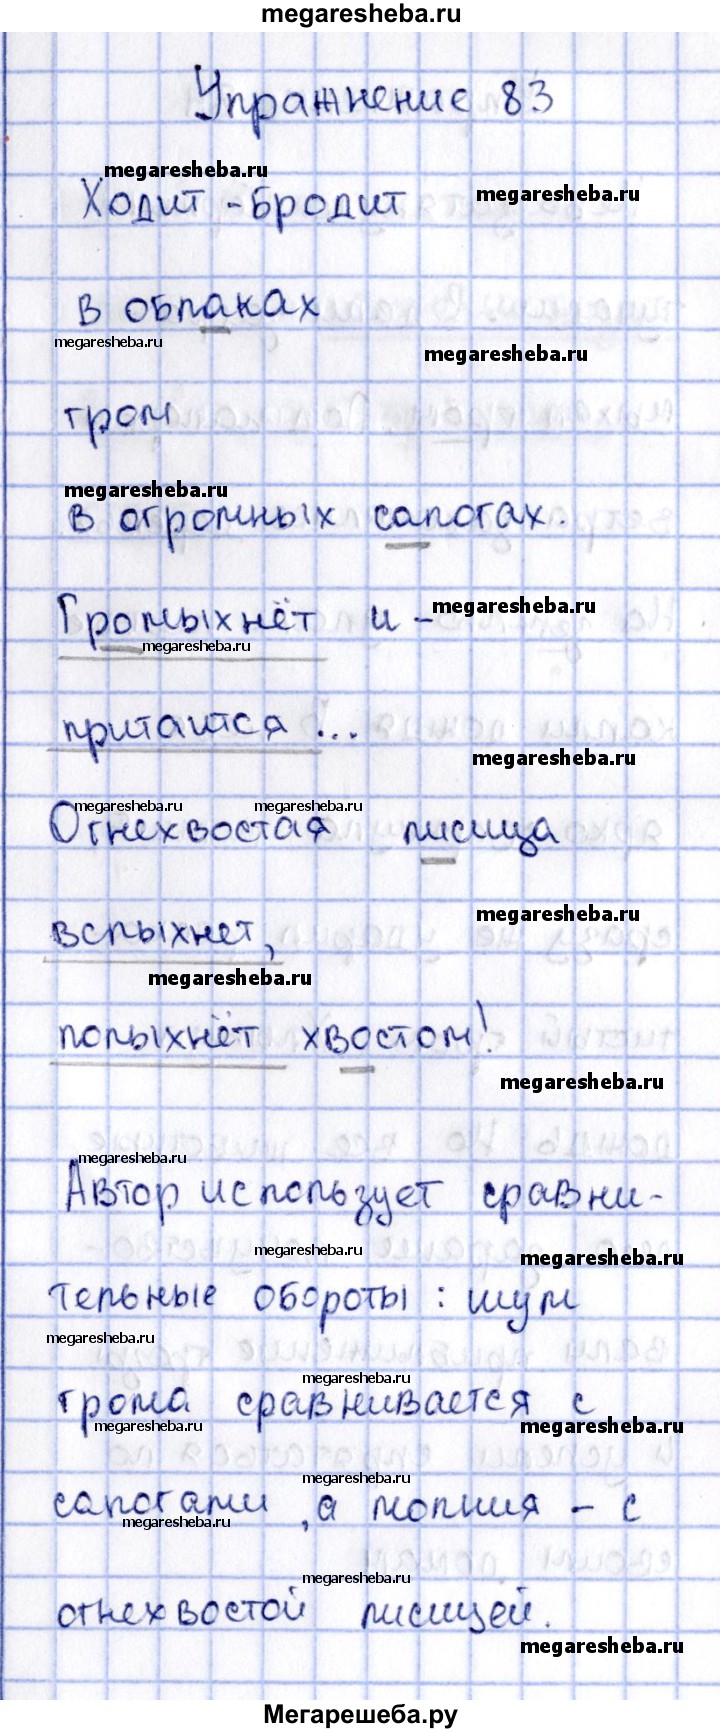 megaresheba.ru
Упражнение 83
megaresheba.ru
Ходит - бродит megaresheba.ru
в облаках
megaresheba.ru
megaresheba.ru
гром
megaresheba.ru
в огромных сапогах.
Громыхнёт и - megaresheba.ru
megaresheba.ru
притаится...
megaresheba.ru
megaresheba.ru megaresheba.ru
Огнехвостая лисица
megaresheba.ru
вспыхнет,
megaresheba.ru
полыхнёт хвостом!
megaresheba.ru
megaresheba.ru
Автор использует сравни-
megaresheba.ru megaresheba.ru
тельные обороты: шум
megaresheba.ru
megaresheba.ru
грома сравнивается с
megaresheba.ru megaresheba.ru
megaresheba.ru
сапогами, а молния - с
megaresheba.ru
megaresheba.ru
огнехвостой лисицей.
megaresheba.ru
Мегарешеба.ру